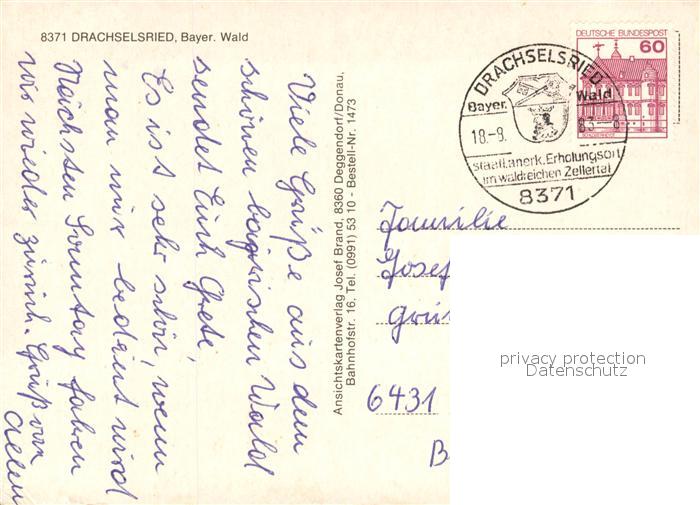 8371 DRACHSELSRIED, Bayer. Wald
Viele Grüße aus dem
schönen bayrischen Wald
sendet Euch Grete,
Es ist sehr schön, wenn
man nur bedient wird
Nächsten Sonntag fahren
wir wieder zurück. Gruß von
allen
Ansichtskartenverlag Josef Brand, 8360 Deggendorf/Donau,
Bahnhofstr. 16, Tel. (0991) 53 10 - Bestell-Nr. 1473
DEUTSCHE BUNDESPOST
60
DRACHSELSRIED
Bayer. Wald
18.-8. 83-8
staatl.anerk.Erholungsort
im waldreichen Zellertal
8371
Familie
Josef
6431
privacy protection
Datenschutz